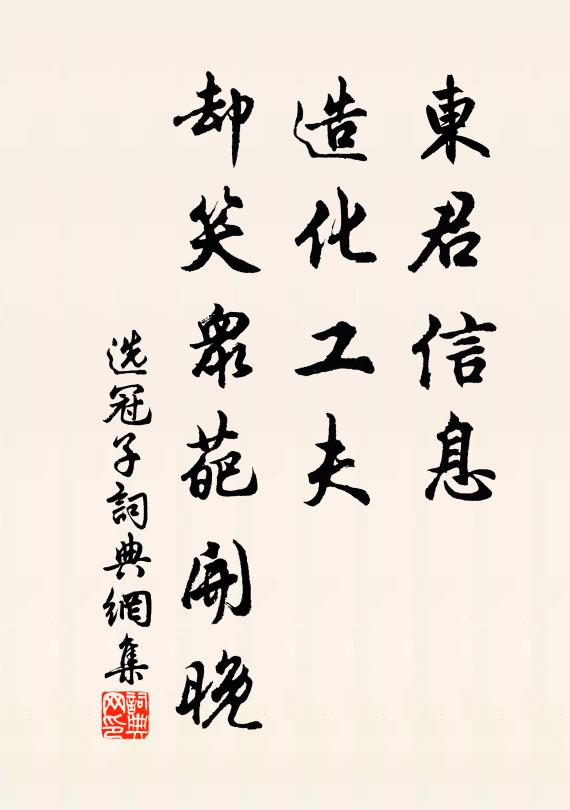 東君信息
造化工夫
却笑眾葩開晚
選冠子詞典網集
詞典
网印